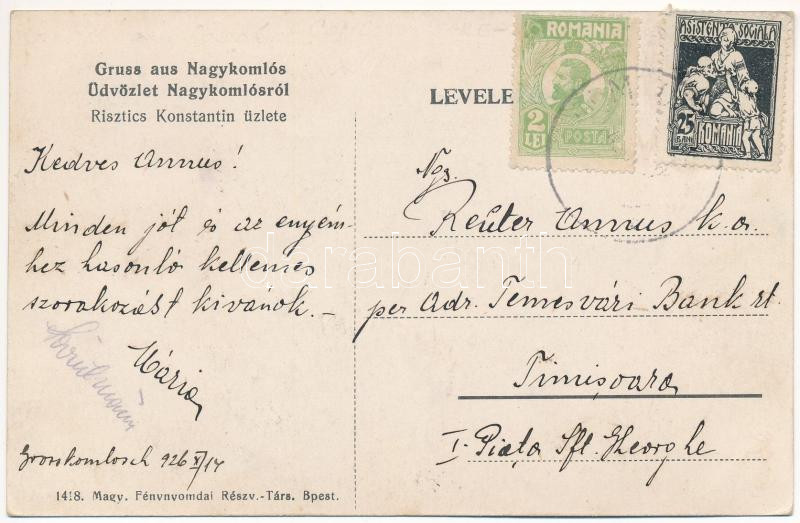 Gruss aus Nagykomlós
Üdvözlet Nagykomlósról
Risztics Konstantin üzlete
LEVELE
ROMANIA
2
LEI
POSTA
ASISTENTA SOCIALA
25
BANI
ROMANIA
Kedves Annus!
Minden jót és az enyém-
hez hasonló kellemes
szorakozást kivánok. –
Mária
Nagys.
Reuter Annus k. a.
per Adr. Temesvári Bank rt.
Timișoara
I. Piața Sft. Gheorghe
Grosskomlosch 926 XI/14
1418. Magy. Fénynyomdai Részv.-Társ. Bpest.
darabanth